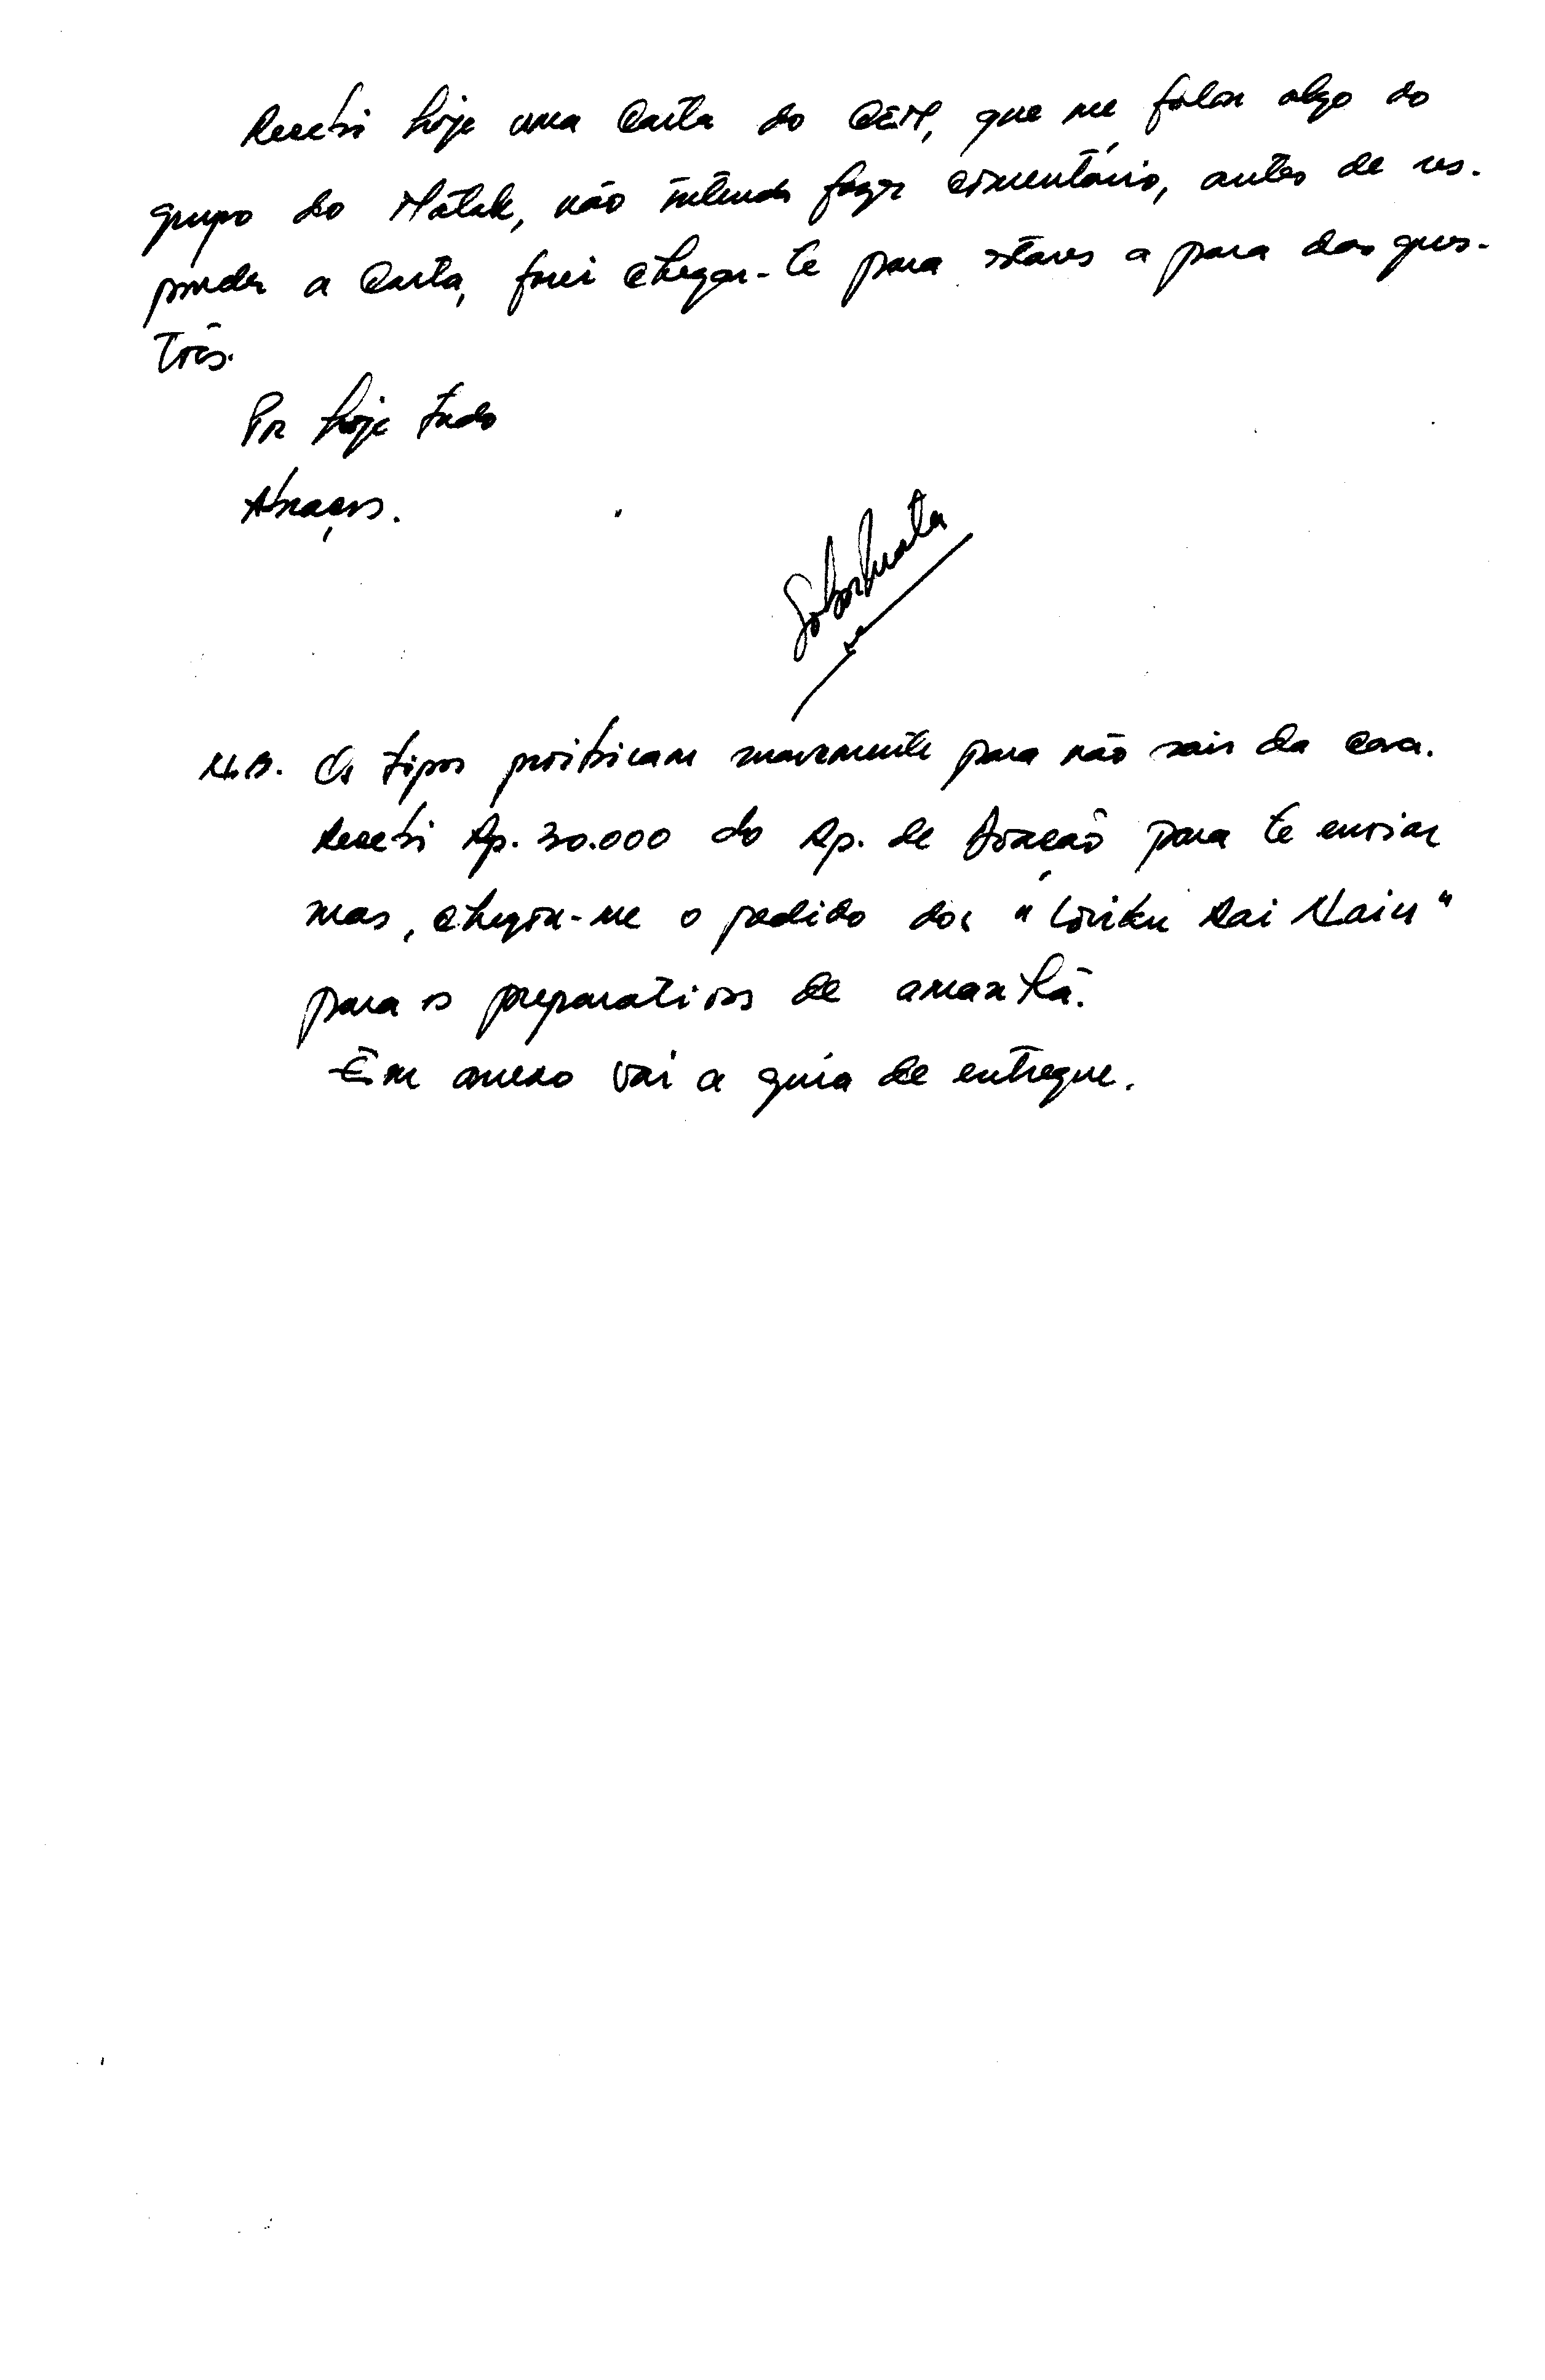 Recebi hoje uma Carta do CEM, que me falou algo do
grupo do Mátak, não intendo fazer comentário, antes de res-
ponder a Carta, farei chegar-te para stares a para das ques-
tões.
Por hoje tudo
Abraços.
N.B. Os tipos proibiram novamente para não sair da casa.
Recebi Rp. 30.000 do Rp. de para te enviar
mas, chegou-me o pedido dos "Loriku Rai Nain"
para os preparativos de amanhã.
Em anexo vai a guia de entregue.